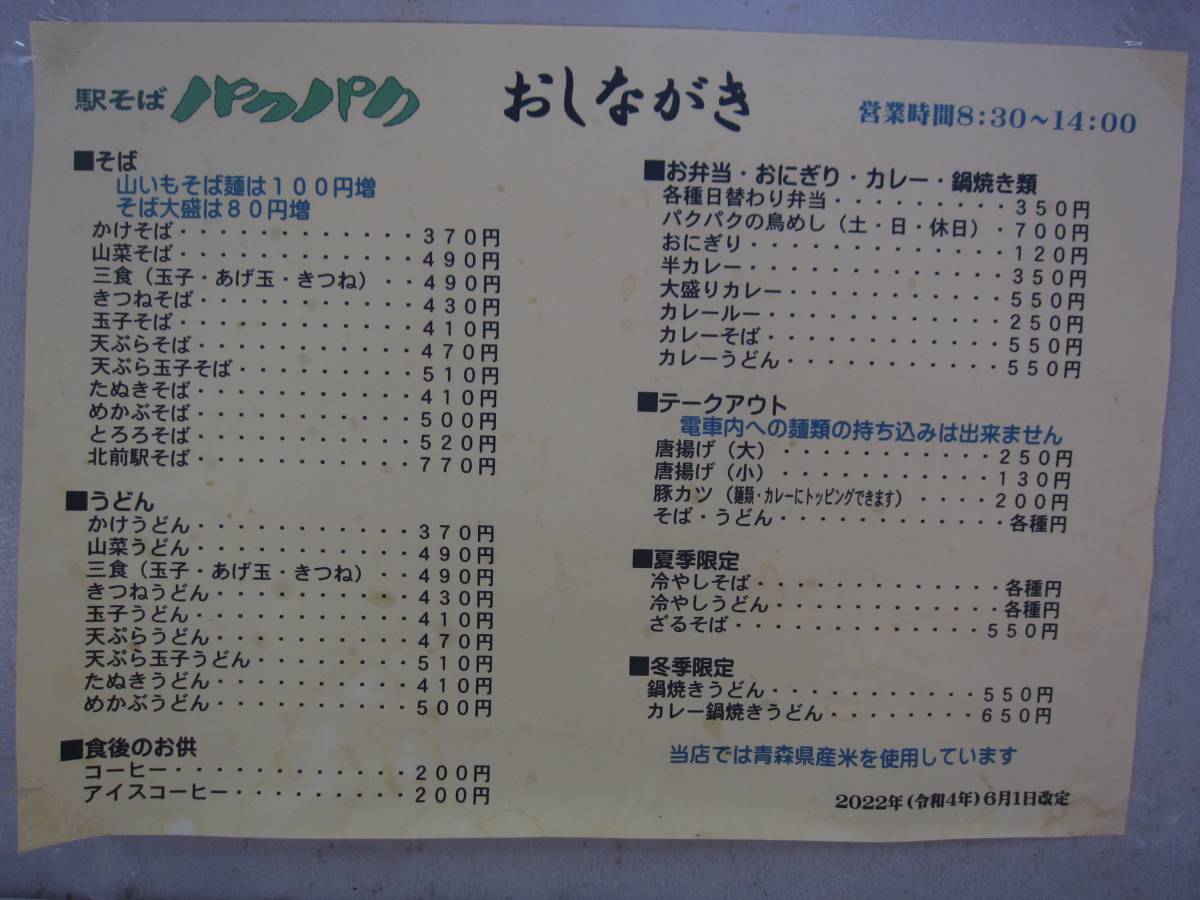 駅そば パクパク おしながき 営業時間8:30～14:00
■そば
山いもそば麺は100円増
そば大盛は80円増
かけそば・・・・・・・・・・・・370円
山菜そば・・・・・・・・・・・・490円
三食（玉子・あげ玉・きつね）・・490円
きつねそば・・・・・・・・・・・430円
玉子そば・・・・・・・・・・・・410円
天ぷらそば・・・・・・・・・・・470円
天ぷら玉子そば・・・・・・・・・510円
たぬきそば・・・・・・・・・・・410円
めかぶそば・・・・・・・・・・・500円
とろろそば・・・・・・・・・・・520円
北前駅そば・・・・・・・・・・・770円
■うどん
かけうどん・・・・・・・・・・・370円
山菜うどん・・・・・・・・・・・490円
三食（玉子・あげ玉・きつね）・・490円
きつねうどん・・・・・・・・・・430円
玉子うどん・・・・・・・・・・・410円
天ぷらうどん・・・・・・・・・・470円
天ぷら玉子うどん・・・・・・・・510円
たぬきうどん・・・・・・・・・・410円
めかぶうどん・・・・・・・・・・500円
■食後のお供
コーヒー・・・・・・・・・・・・200円
アイスコーヒー・・・・・・・・・200円
■お弁当・おにぎり・カレー・鍋焼き類
各種日替わり弁当・・・・・・・・・350円
パクパクの鳥めし（土・日・休日）・700円
おにぎり・・・・・・・・・・・・・120円
半カレー・・・・・・・・・・・・・350円
大盛りカレー・・・・・・・・・・・550円
カレールー・・・・・・・・・・・・250円
カレーそば・・・・・・・・・・・・550円
カレーうどん・・・・・・・・・・・550円
■テークアウト
電車内への麺類の持ち込みは出来ません
唐揚げ（大）・・・・・・・・・・・250円
唐揚げ（小）・・・・・・・・・・・130円
豚カツ（麺類・カレーにトッピングできます）・・・・200円
そば・うどん・・・・・・・・・・・・各種円
■夏季限定
冷やしそば・・・・・・・・・・・・・各種円
冷やしうどん・・・・・・・・・・・・各種円
ざるそば・・・・・・・・・・・・・550円
■冬季限定
鍋焼きうどん・・・・・・・・・・・550円
カレー鍋焼きうどん・・・・・・・・650円
当店では青森県産米を使用しています
2022年(令和4年)6月1日改定